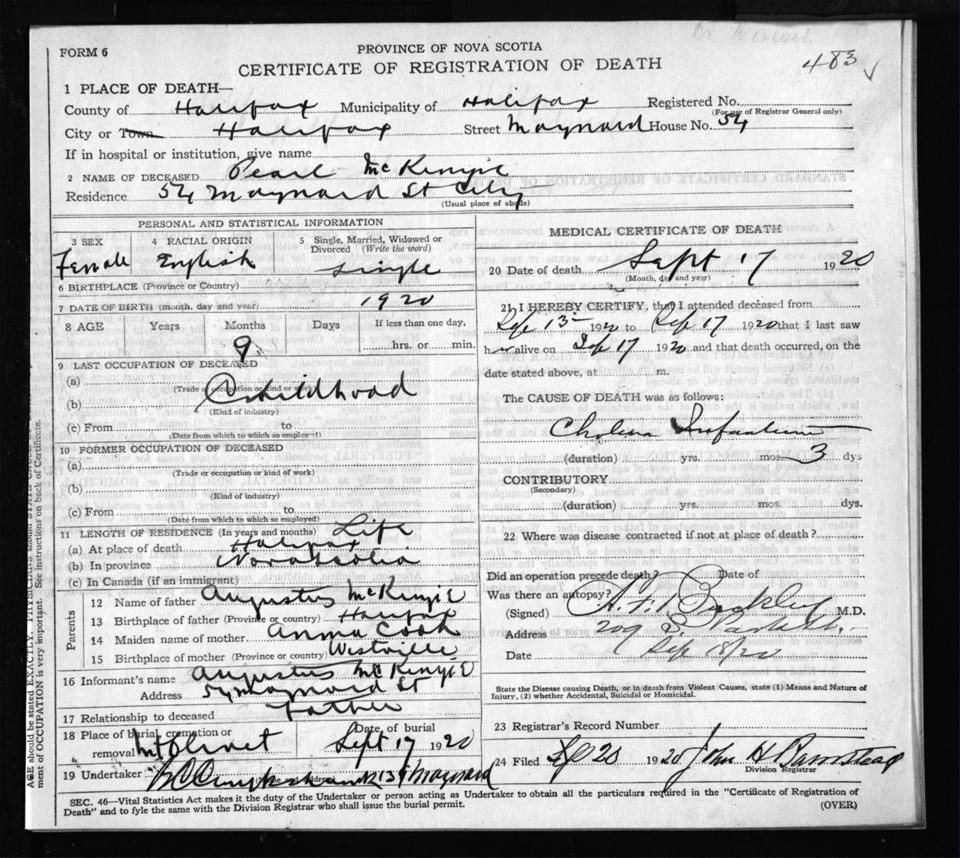 483 ✓
FORM 6
PROVINCE OF NOVA SCOTIA
CERTIFICATE OF REGISTRATION OF DEATH
1 PLACE OF DEATH—
County of Halifax Municipality of Halifax Registered No.
(For use of Registrar General only)
City or Town Halifax Street Maynard House No. 54
If in hospital or institution, give name
2 NAME OF DECEASED Pearl McKenzie
Residence 54 Maynard St City
(Usual place of abode)
PERSONAL AND STATISTICAL INFORMATION
3 SEX 4 RACIAL ORIGIN 5 Single, Married, Widowed or Divorced (Write the word)
Female English Single
6 BIRTHPLACE (Province or Country)
7 DATE OF BIRTH (month, day and year) 1920
8 AGE Years Months Days If less than one day,
9 hrs. or min.
9 LAST OCCUPATION OF DECEASED
(a) Childhood
(Trade or occupation or kind of work)
(b)
(Kind of industry)
(c) From to
(Date from which to which so employed)
10 FORMER OCCUPATION OF DECEASED
(a)
(Trade or occupation or kind of work)
(b)
(Kind of industry)
(c) From to
(Date from which to which so employed)
11 LENGTH OF RESIDENCE (In years and months) Life
(a) At place of death Halifax
(b) In province Nova Scotia
(c) In Canada (if an immigrant)
Parents
12 Name of father Augustus McKenzie
13 Birthplace of father (Province or country) Halifax
14 Maiden name of mother Anna Cook
15 Birthplace of mother (Province or country) Westville
16 Informant's name Augustus McKenzie
Address 54 Maynard St
17 Relationship to deceased Father
18 Place of burial, cremation or removal Mt Olivet Date of burial Sept 17 1920
19 Undertaker Maynard
MEDICAL CERTIFICATE OF DEATH
20 Date of death Sept 17 1920
(Month, day and year)
21 I HEREBY CERTIFY, that I attended deceased from
Sep 13 1920 to Sep 17 1920 that I last saw
h alive on Sep 17 1920 and that death occurred, on the
date stated above, at m.
The CAUSE OF DEATH was as follows:
Cholera Infantum
(duration) yrs. mos. 3 dys
CONTRIBUTORY
(Secondary)
(duration) yrs. mos. dys.
22 Where was disease contracted if not at place of death?
Did an operation precede death? Date of
Was there an autopsy?
(Signed) Buckley M.D.
Address
Date Sep 18/20
State the Disease causing Death, or in death from Violent Causes, state (1) Means and Nature of
Injury, (2) whether Accidental, Suicidal or Homicidal.
23 Registrar's Record Number
24 Filed Sep 20 1920 John H Barnstead
Division Registrar
SEC. 46—Vital Statistics Act makes it the duty of the Undertaker or person acting as Undertaker to obtain all the particulars required in the "Certificate of Registration of
Death" and to fyle the same with the Division Registrar who shall issue the burial permit.
(OVER)
AGE should be stated EXACTLY. PHYSICIANS should STATE
ment of OCCUPATION is very important. See instructions on back of Certificate.